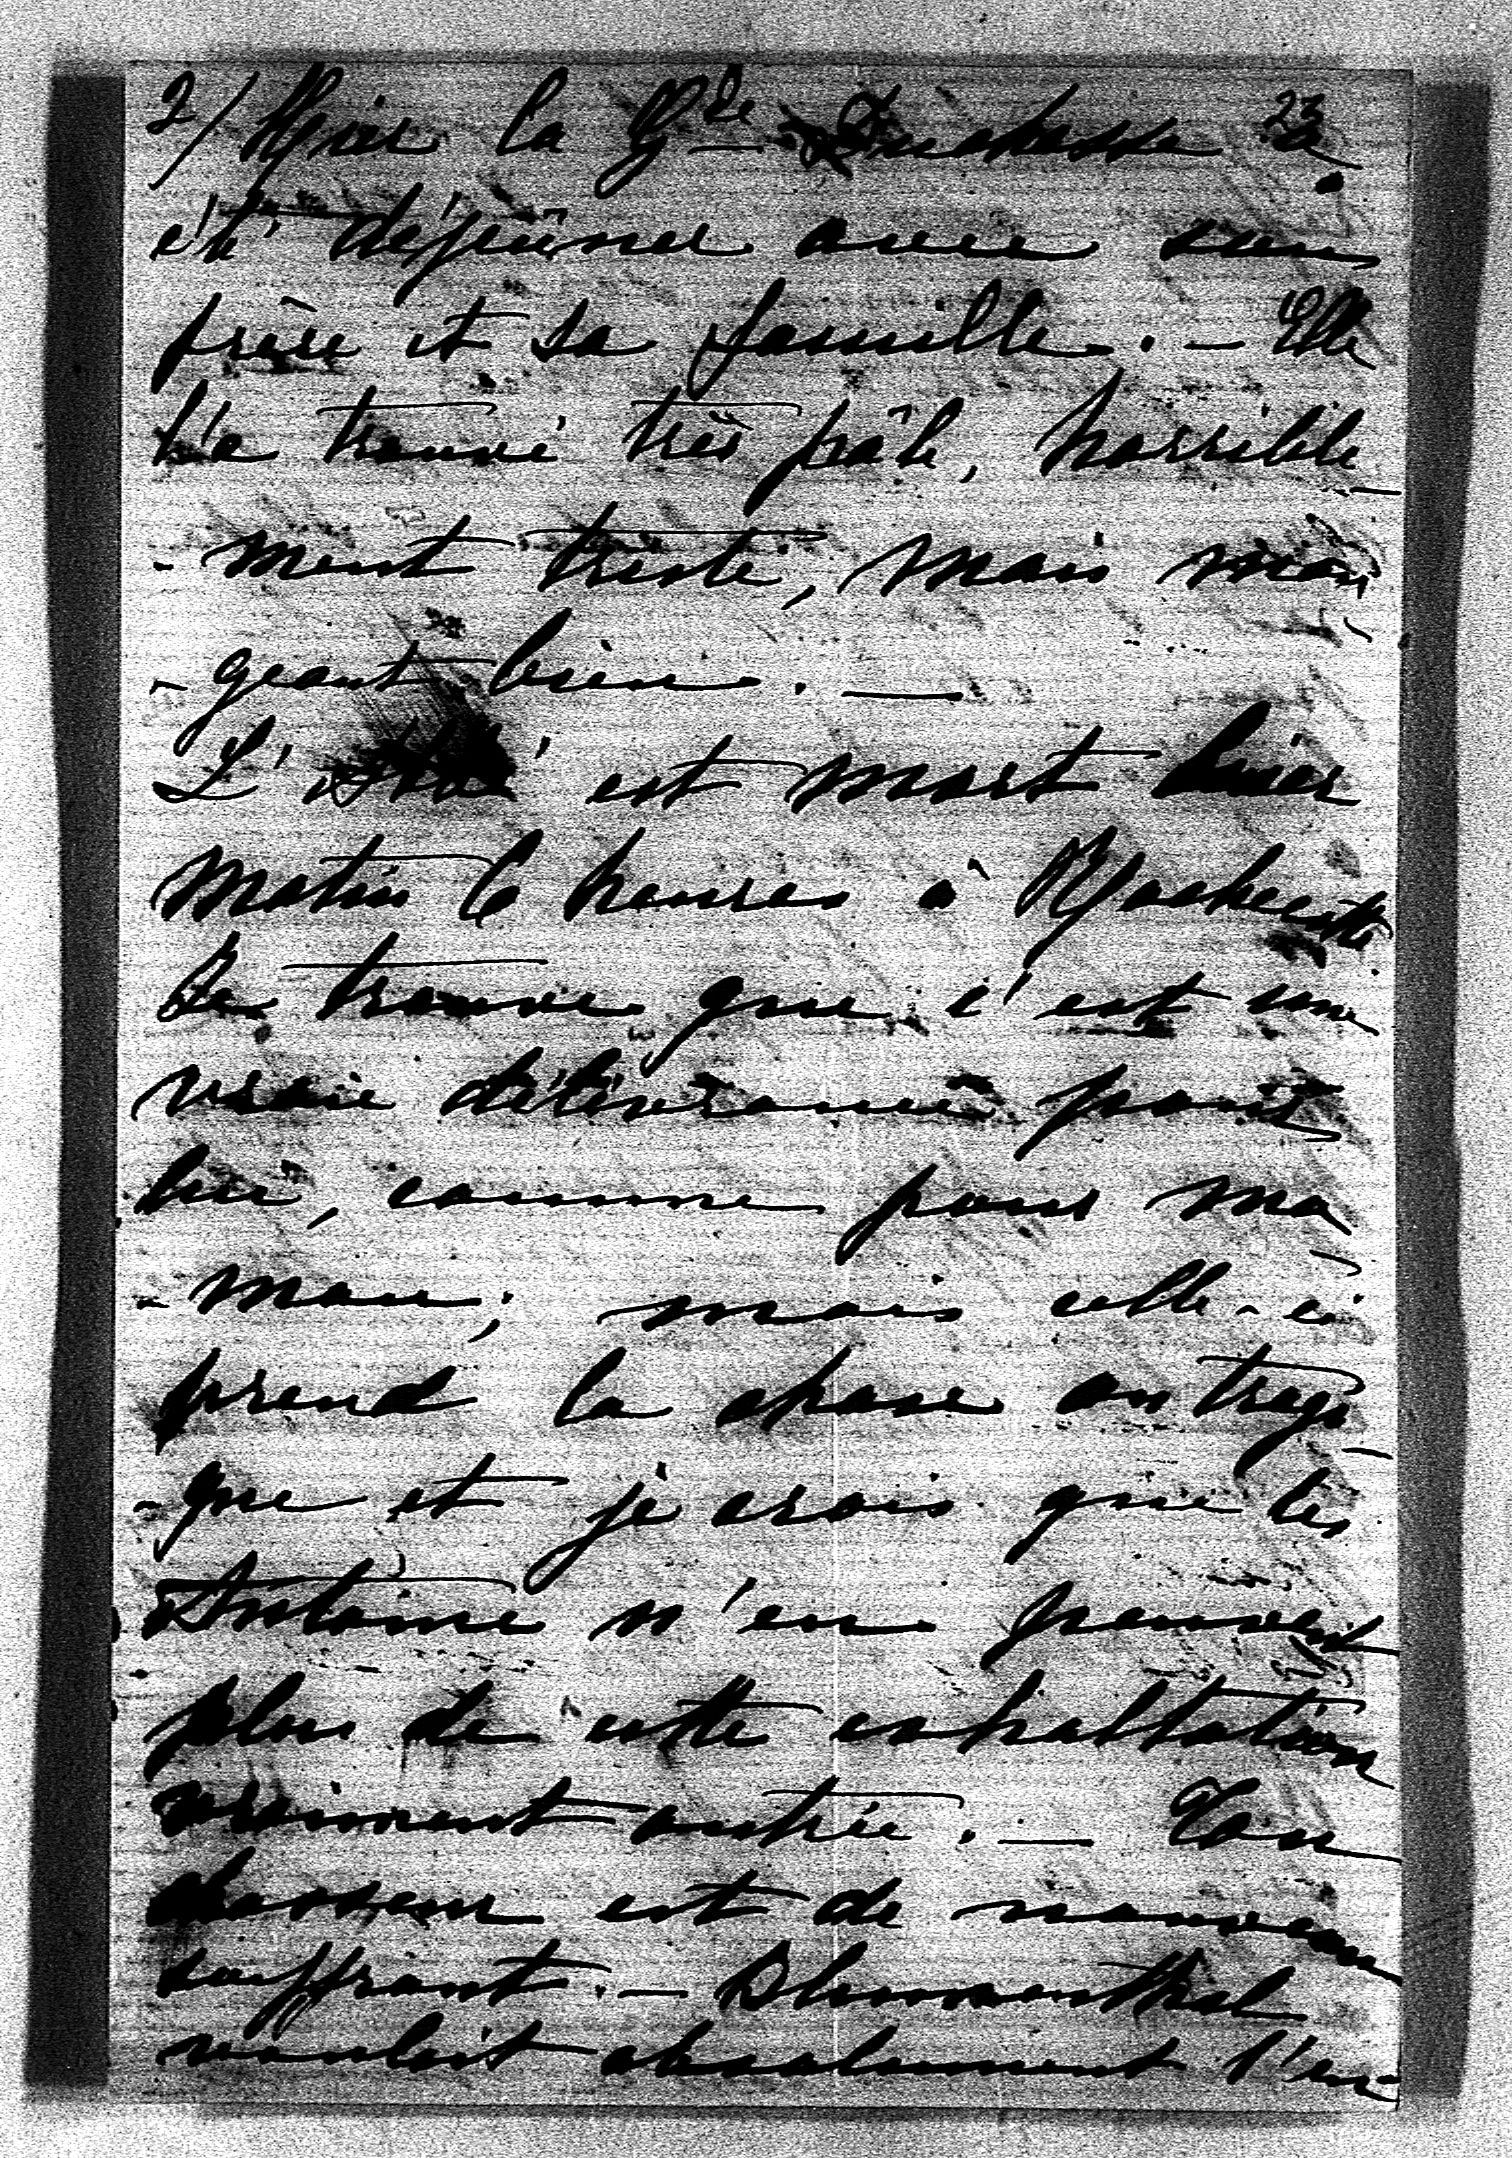 2/ Hier la Gde Duchesse a 23
été déjeûner avec son
frère et sa famille. — Elle
l'a trouvé très pâle, horrible-
-ment triste, mais man-
-geant bien. —
L'Abbé est mort hier
matin 6 heures à
Je trouve que c'est une
vraie délivrance pour
lui, comme pour ma-
-man; mais celle-ci
prend la chose en tragi-
-que et je crois que les
Antoine n'en peuvent
plus de cette exhaltation
vraiment outrée. — Ton
chasseur est de nouveau
souffrant. — Blumenthal
voulait absolument l'en-